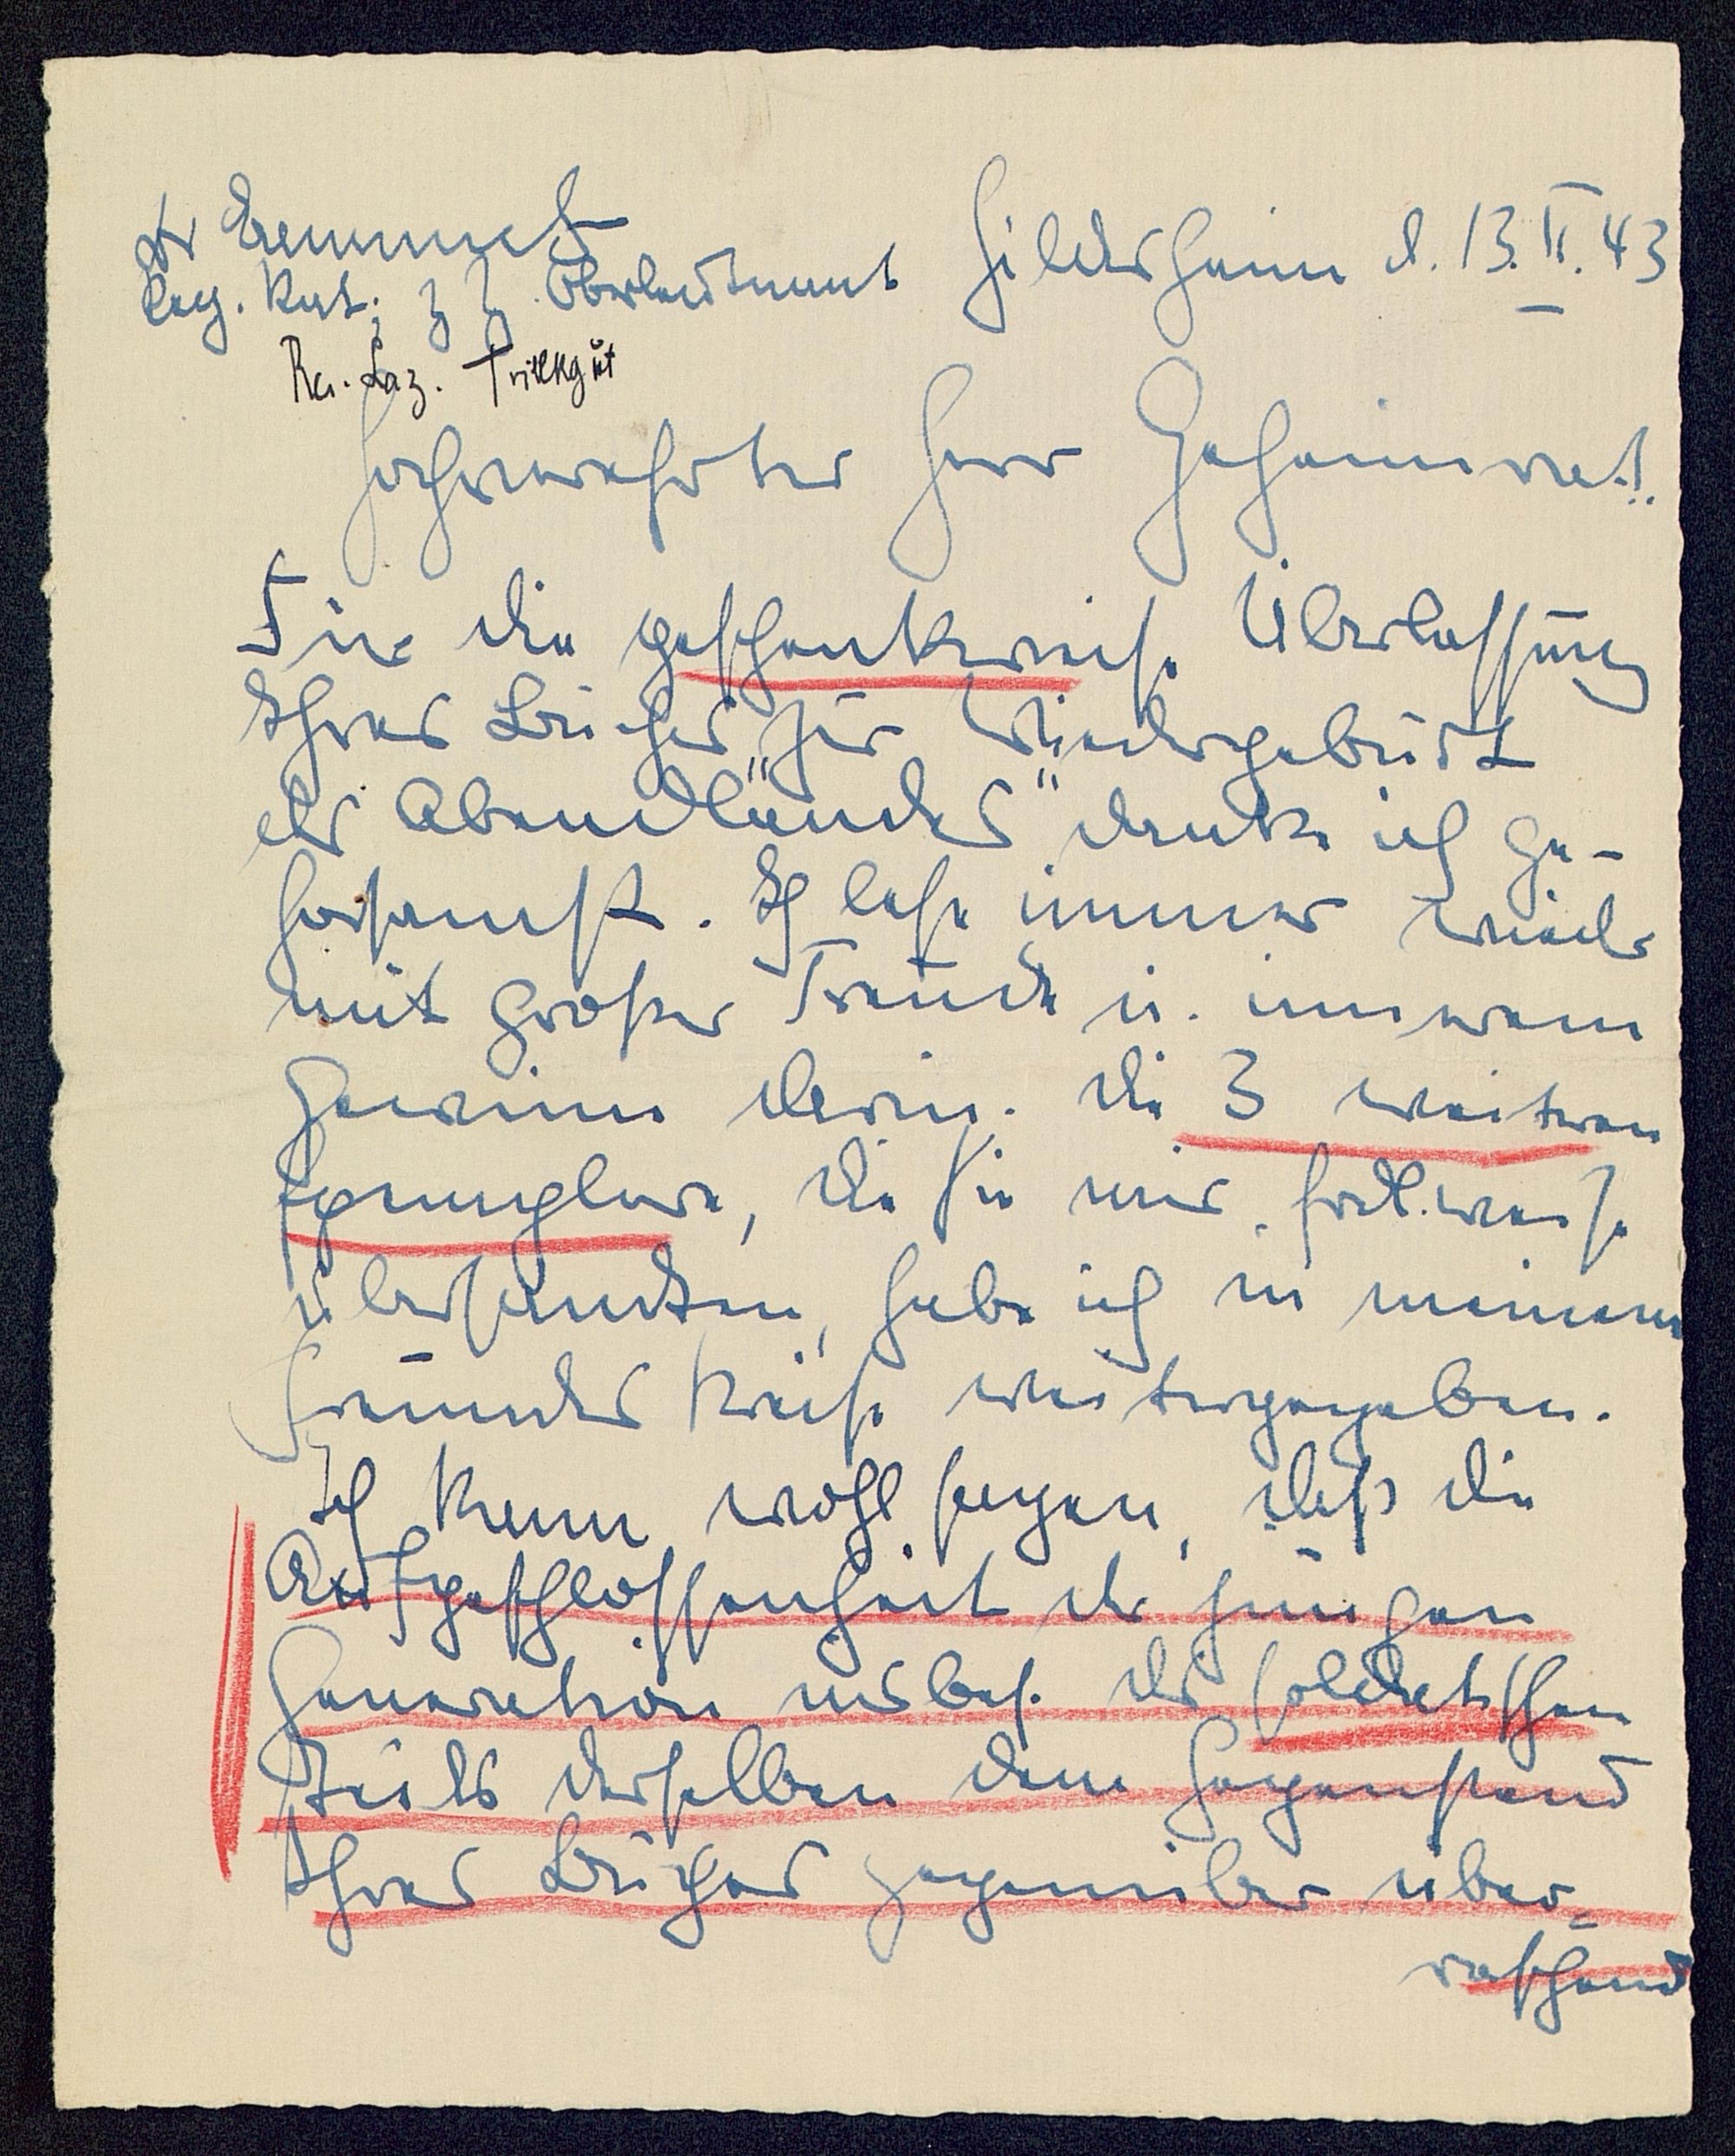 Dr Lemmel
Reg. Rat; z Z. Oberleutnant Hildesheim d. 13. II. 43
Res. Laz. Trillkgut
Hochverehrter Herr Geheimrat!
Für die geschenkweise Überlassung
Ihres Buches „Zur Wiedergeburt
des Abendlandes" danke ich ge-
horsamst. Ich lese immer wieder
mit großer Freude u. innerem
Gewinn darin. Die 3 weiteren
Exemplare, die Sie mir frdl. weise
übersandten, habe ich in meinem
Freundeskreise weitergegeben.
Ich kann wohl sagen, daß die
Aufgeschlossenheit der jungen
Generation insbes. des soldatischen
Teils derselben dem Gegenstand
Ihres Buches gegenüber über-
raschend